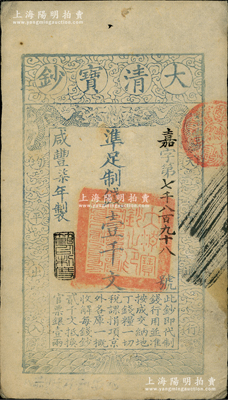 上海陽明拍賣
大清寶鈔
嘉字第七千八百九十八號
準足制錢壹千文
咸豐柒年製
此鈔即代制
錢行用並准
按成交納地
丁錢糧一切
稅課捐項京
外各庫一概
收解每錢鈔
貳千文抵換
官票銀壹兩
上海陽明拍賣